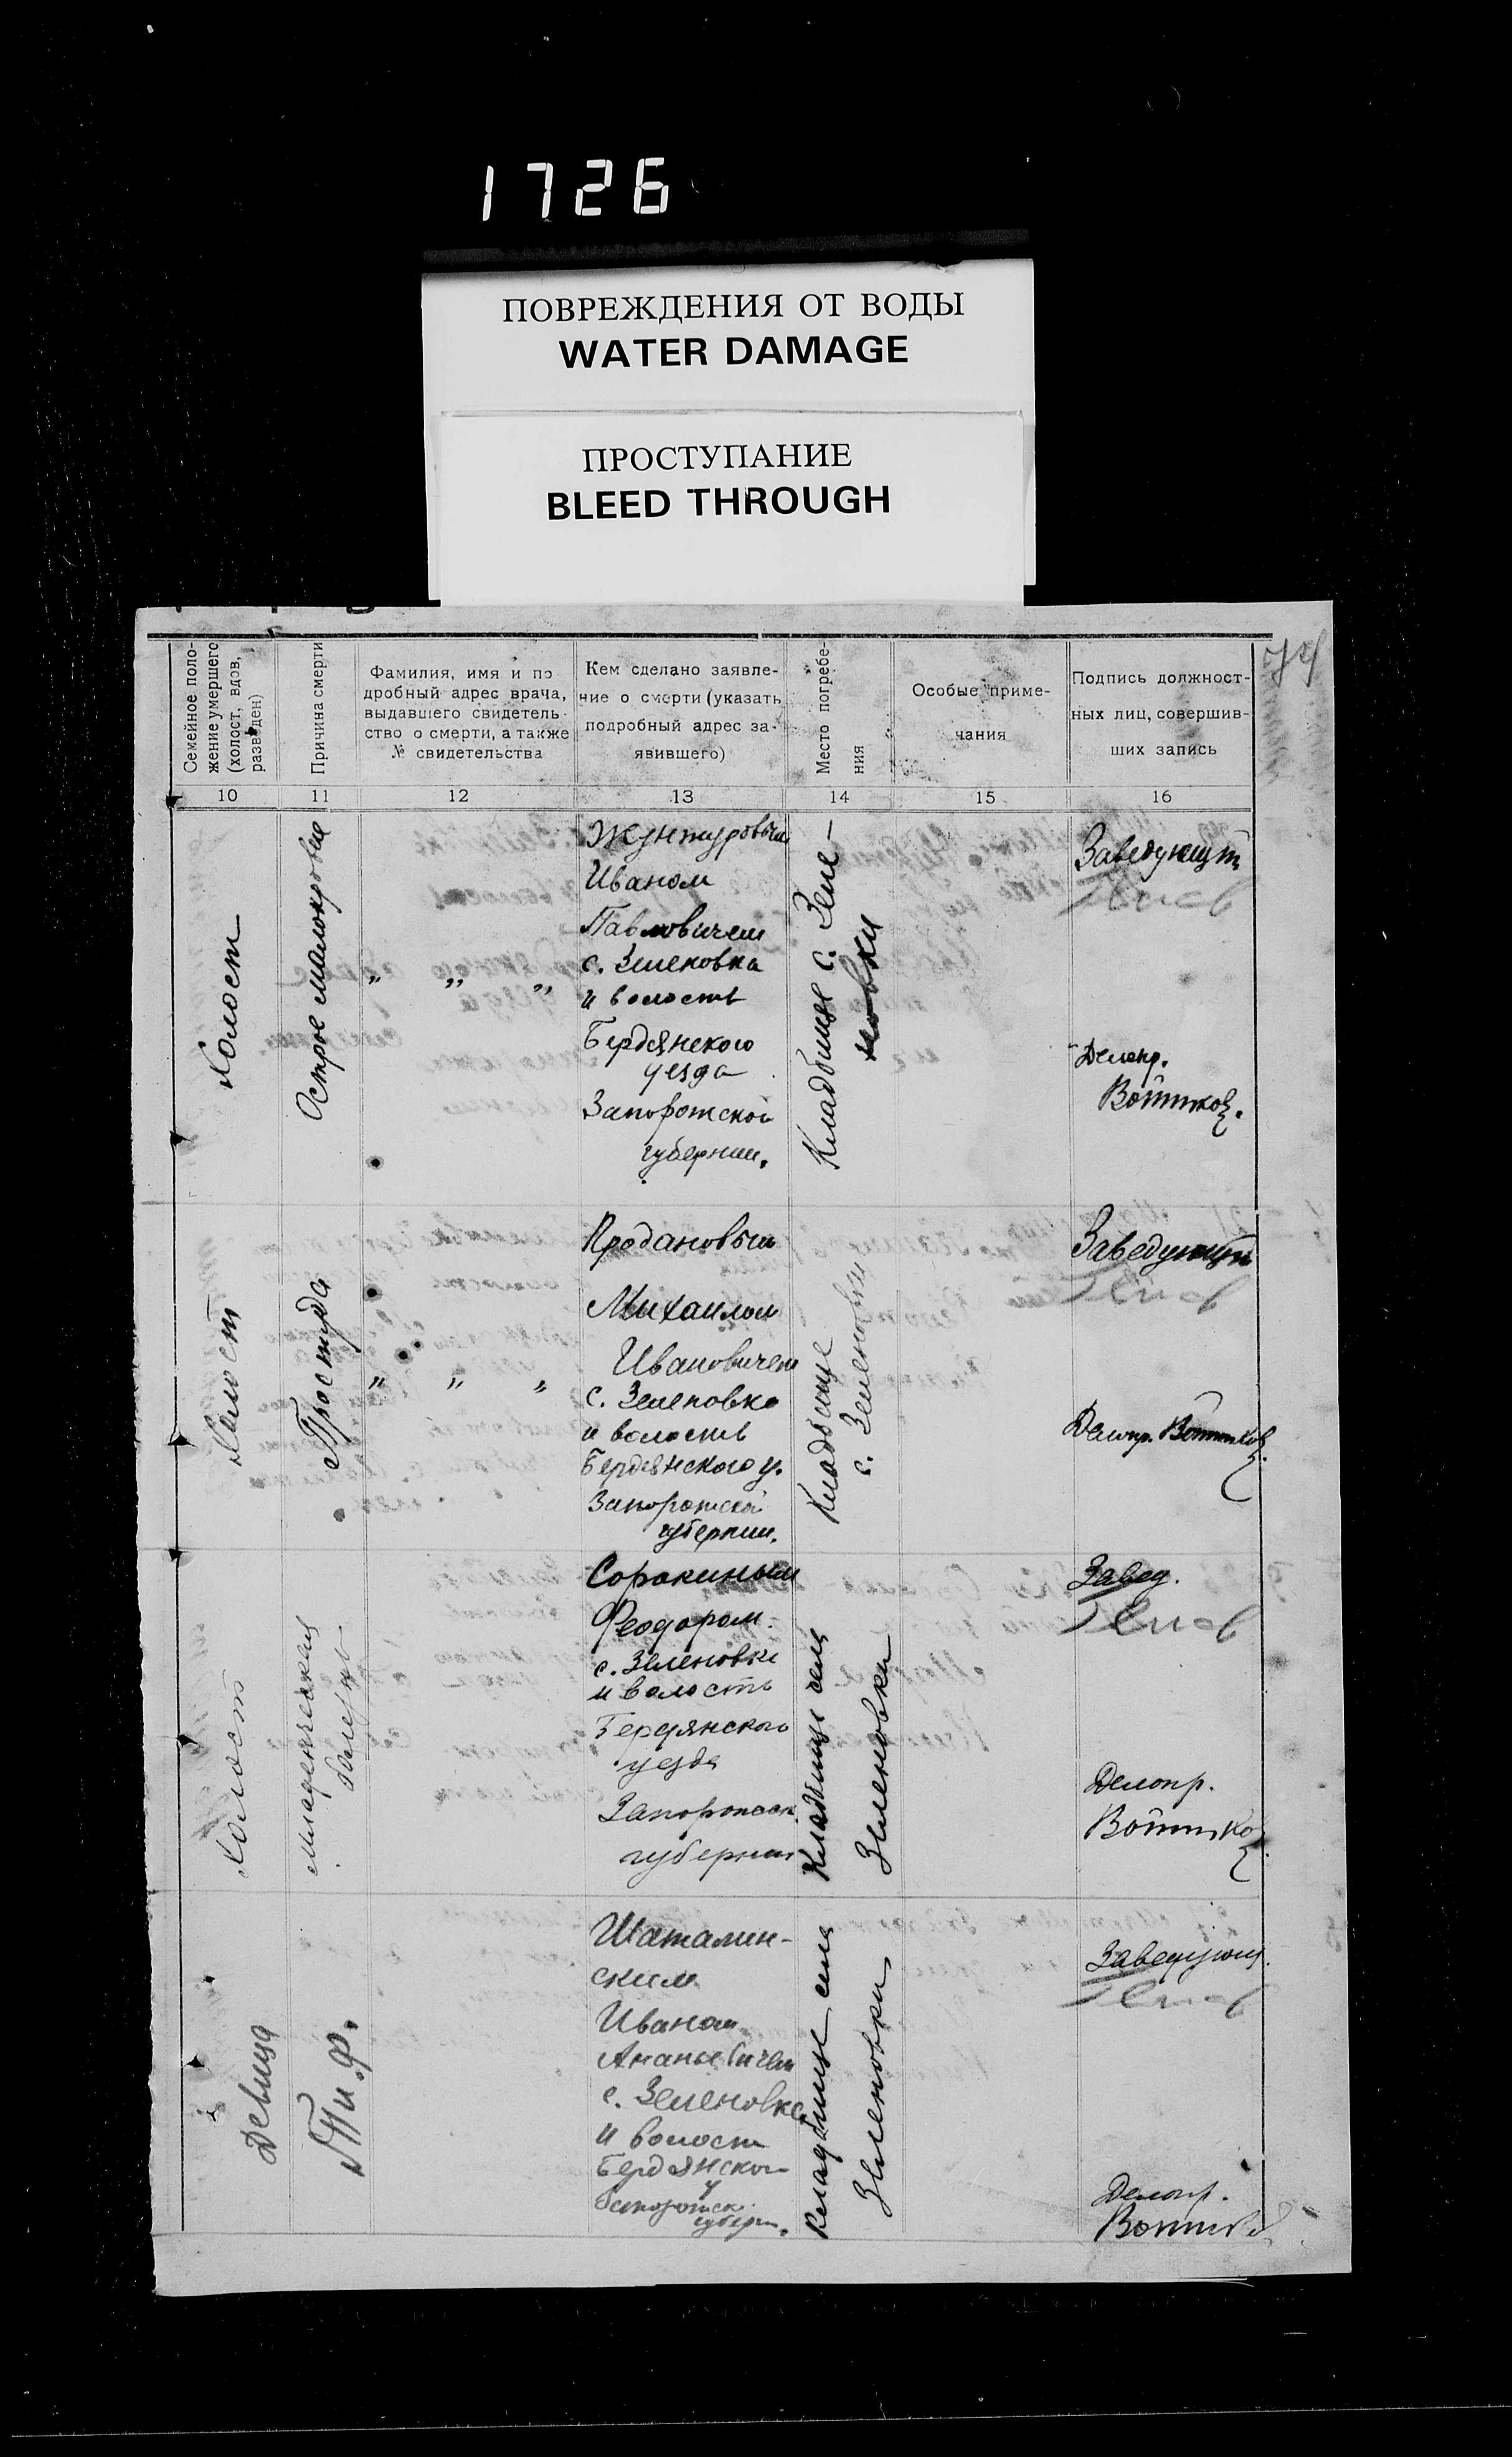 1726
ПОВРЕЖДЕНИЯ ОТ ВОДЫ
WATER DAMAGE
ПРОСТУПАНИЕ
BLEED THROUGH
Семейное поло-
жение умершего
(холост, вдов,
разведен)
Причина смерти
Фамилия, имя и по
дробный адрес врача,
выдавшего свидетель-
ство о смерти, а также
№ свидетельства
Кем сделано заявле-
ние о смерти (указать
подробный адрес за-
явившего)
Место погребе-
ния
Особые приме-
чания
Подпись должност-
ных лиц, совершив-
ших запись
10 11 12 13 14 15 16
Холост
Острое малокровие
„ „ „
Жунжуровым
Иваном
Павловичем
с. Зеленовка
и волость
Бердянского
уезда
Запорожской
губернии.
Кладбище с. Зеле-
новки
Заведующий
Делопр.
Войтиков.
Холост
Простуда
„ „ „
Продановым
Михаилом
Ивановичем
с. Зеленовка
и волость
Бердянского у.
Запорожской
губернии.
Кладбище
с. Зеленовки
Заведующий
Делопр. Войтиков.
Холост
Младенческая
болезнь
Сорокиным
Феодором
с. Зеленовки
и волость
Бердянского
уезда
Запорожск.
губернии
Кладбище села
Зеленовки
Завед.
Делопр.
Войтиков
Девица
Тиф.
Шаталин-
ским
Иваном
Ананьевичем
с. Зеленовка
и волост
Бердянског
у
Запорожск.
губерн.
Кладбище села
Зеленовки
Заведующ.
Делопр.
Войтиков